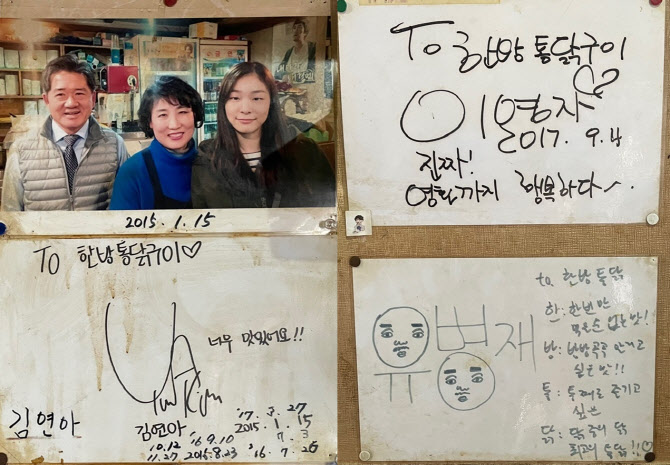 2015. 1. 15
TO 한방통닭구이♡
너무 맛있어요!!
Yuna Kim
김연아
김연아
'17. 7. 27
2015. 1. 15
'16 9.10
2015.8.23
'16. 7. 26
10.12
11.27
To 한방통닭구이
이영자♡
2017. 9. 4
진짜!
영혼까지 행복하다~.
to 한방통닭
유병재
한: 한번만
먹은순 없는 맛!
방: 방방곡곡 안기고
싶은 맛!!
통: 통째로 즐기고
싶은
닭: 닭 중의 닭
최고의 통닭!!♡